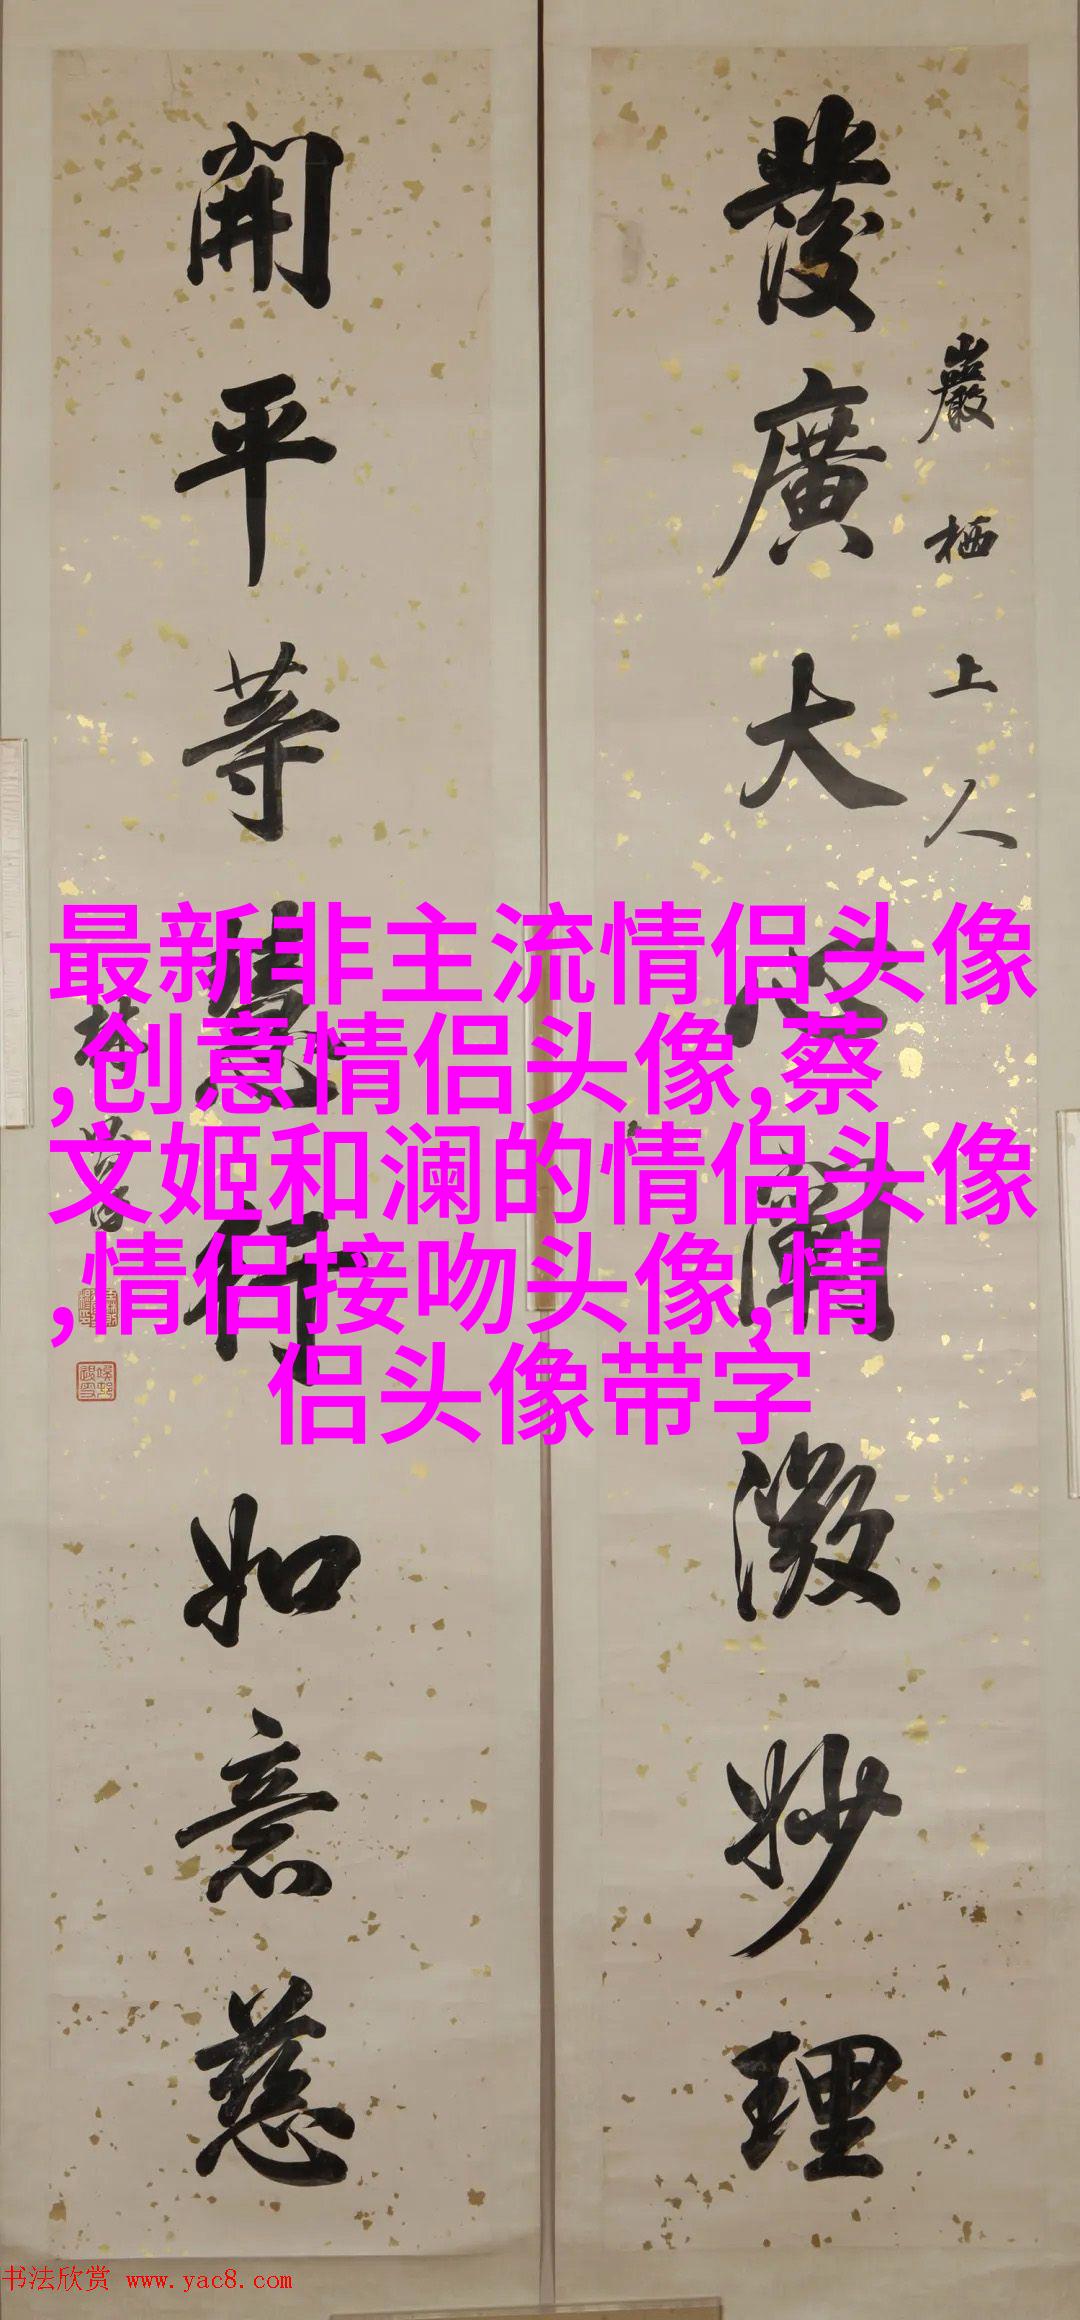 發廣大心闡微妙理
巖栖上人
開平等慧行如意慈
林
最新非主流情侣头像
,创意情侣头像,蔡
文姬和澜的情侣头像
,情侣接吻头像,情
侣头像带字
书法欣赏 www.yac8.com